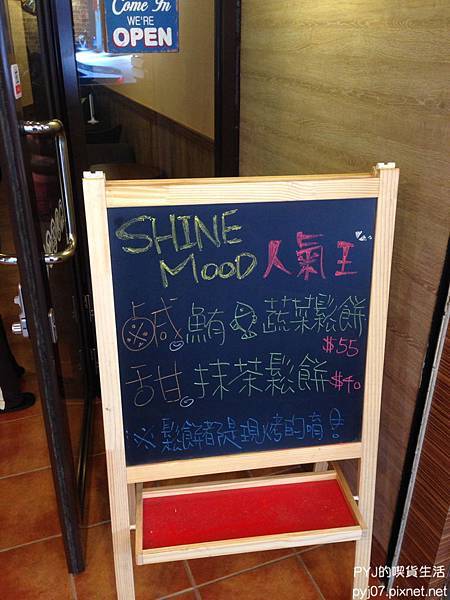 Come In
WE'RE
OPEN
SHINE
MOOD 人氣王
鹹 鮪 蔬菜鬆餅
$55
甜 抹茶鬆餅 $40
※鬆餅都是現烤的唷!
PYJ的喫貨生活
pyj07.pixnet.net